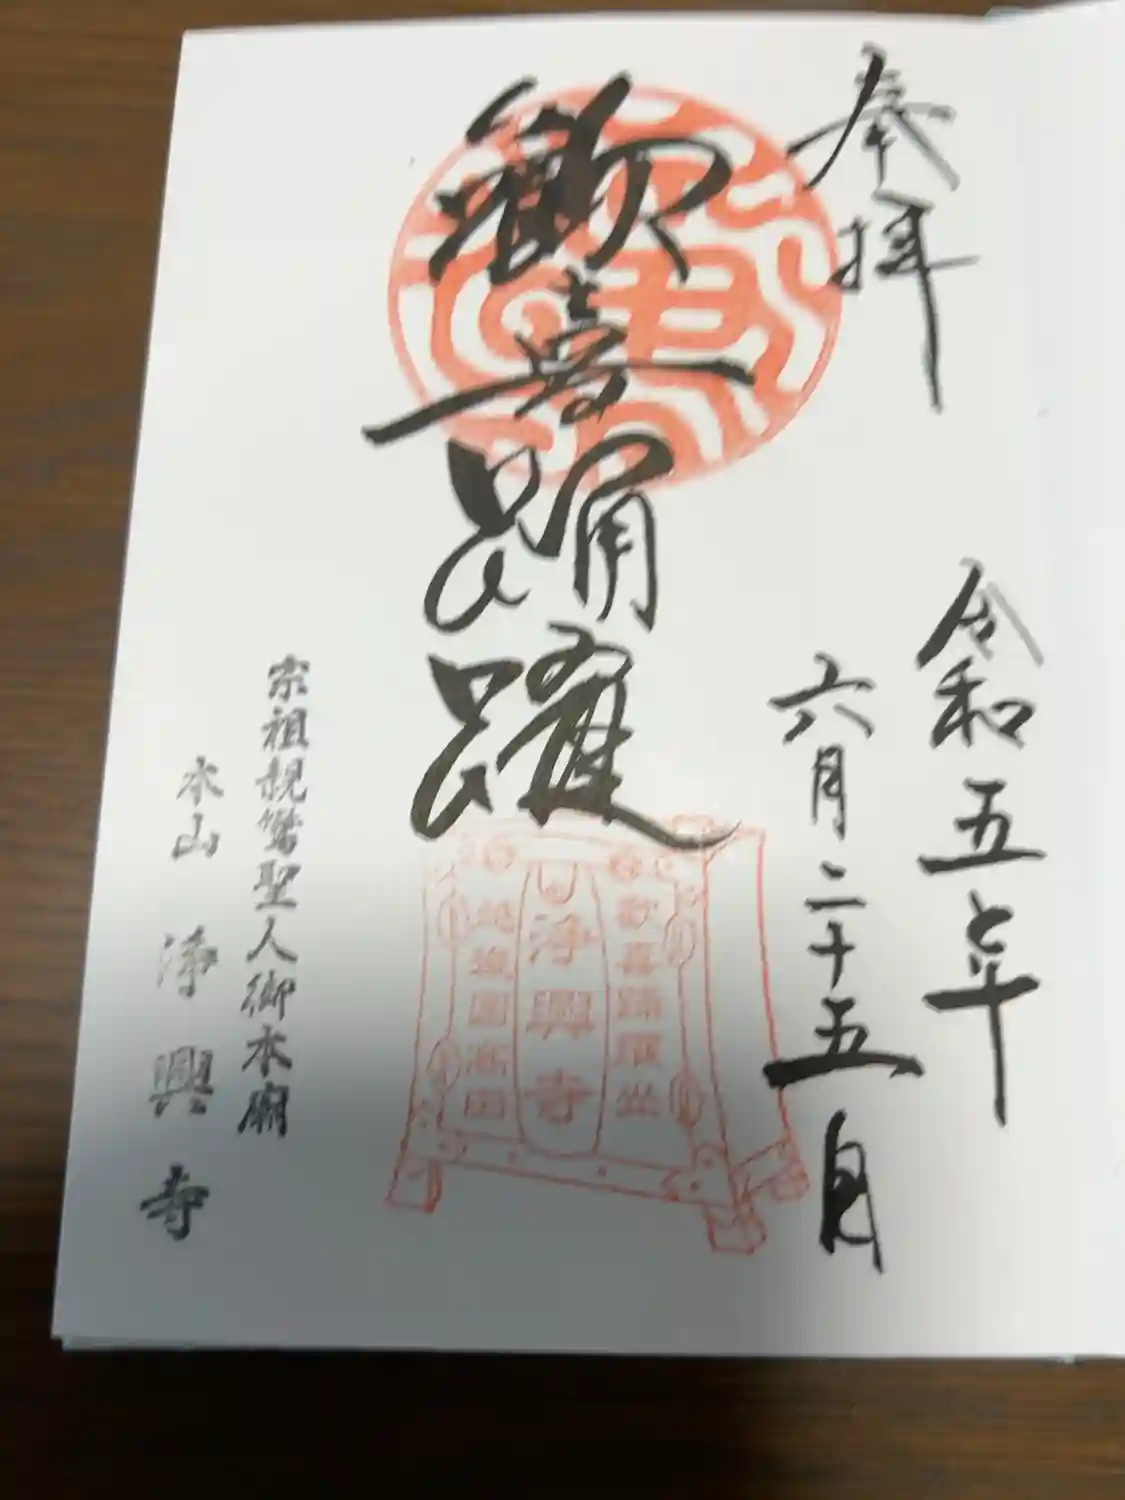 奉拝
令和五年
六月二十五日
歓喜踊躍
歓喜踊躍山
浄興寺
越後国高田
宗祖親鸞聖人御本廟
本山 浄興寺